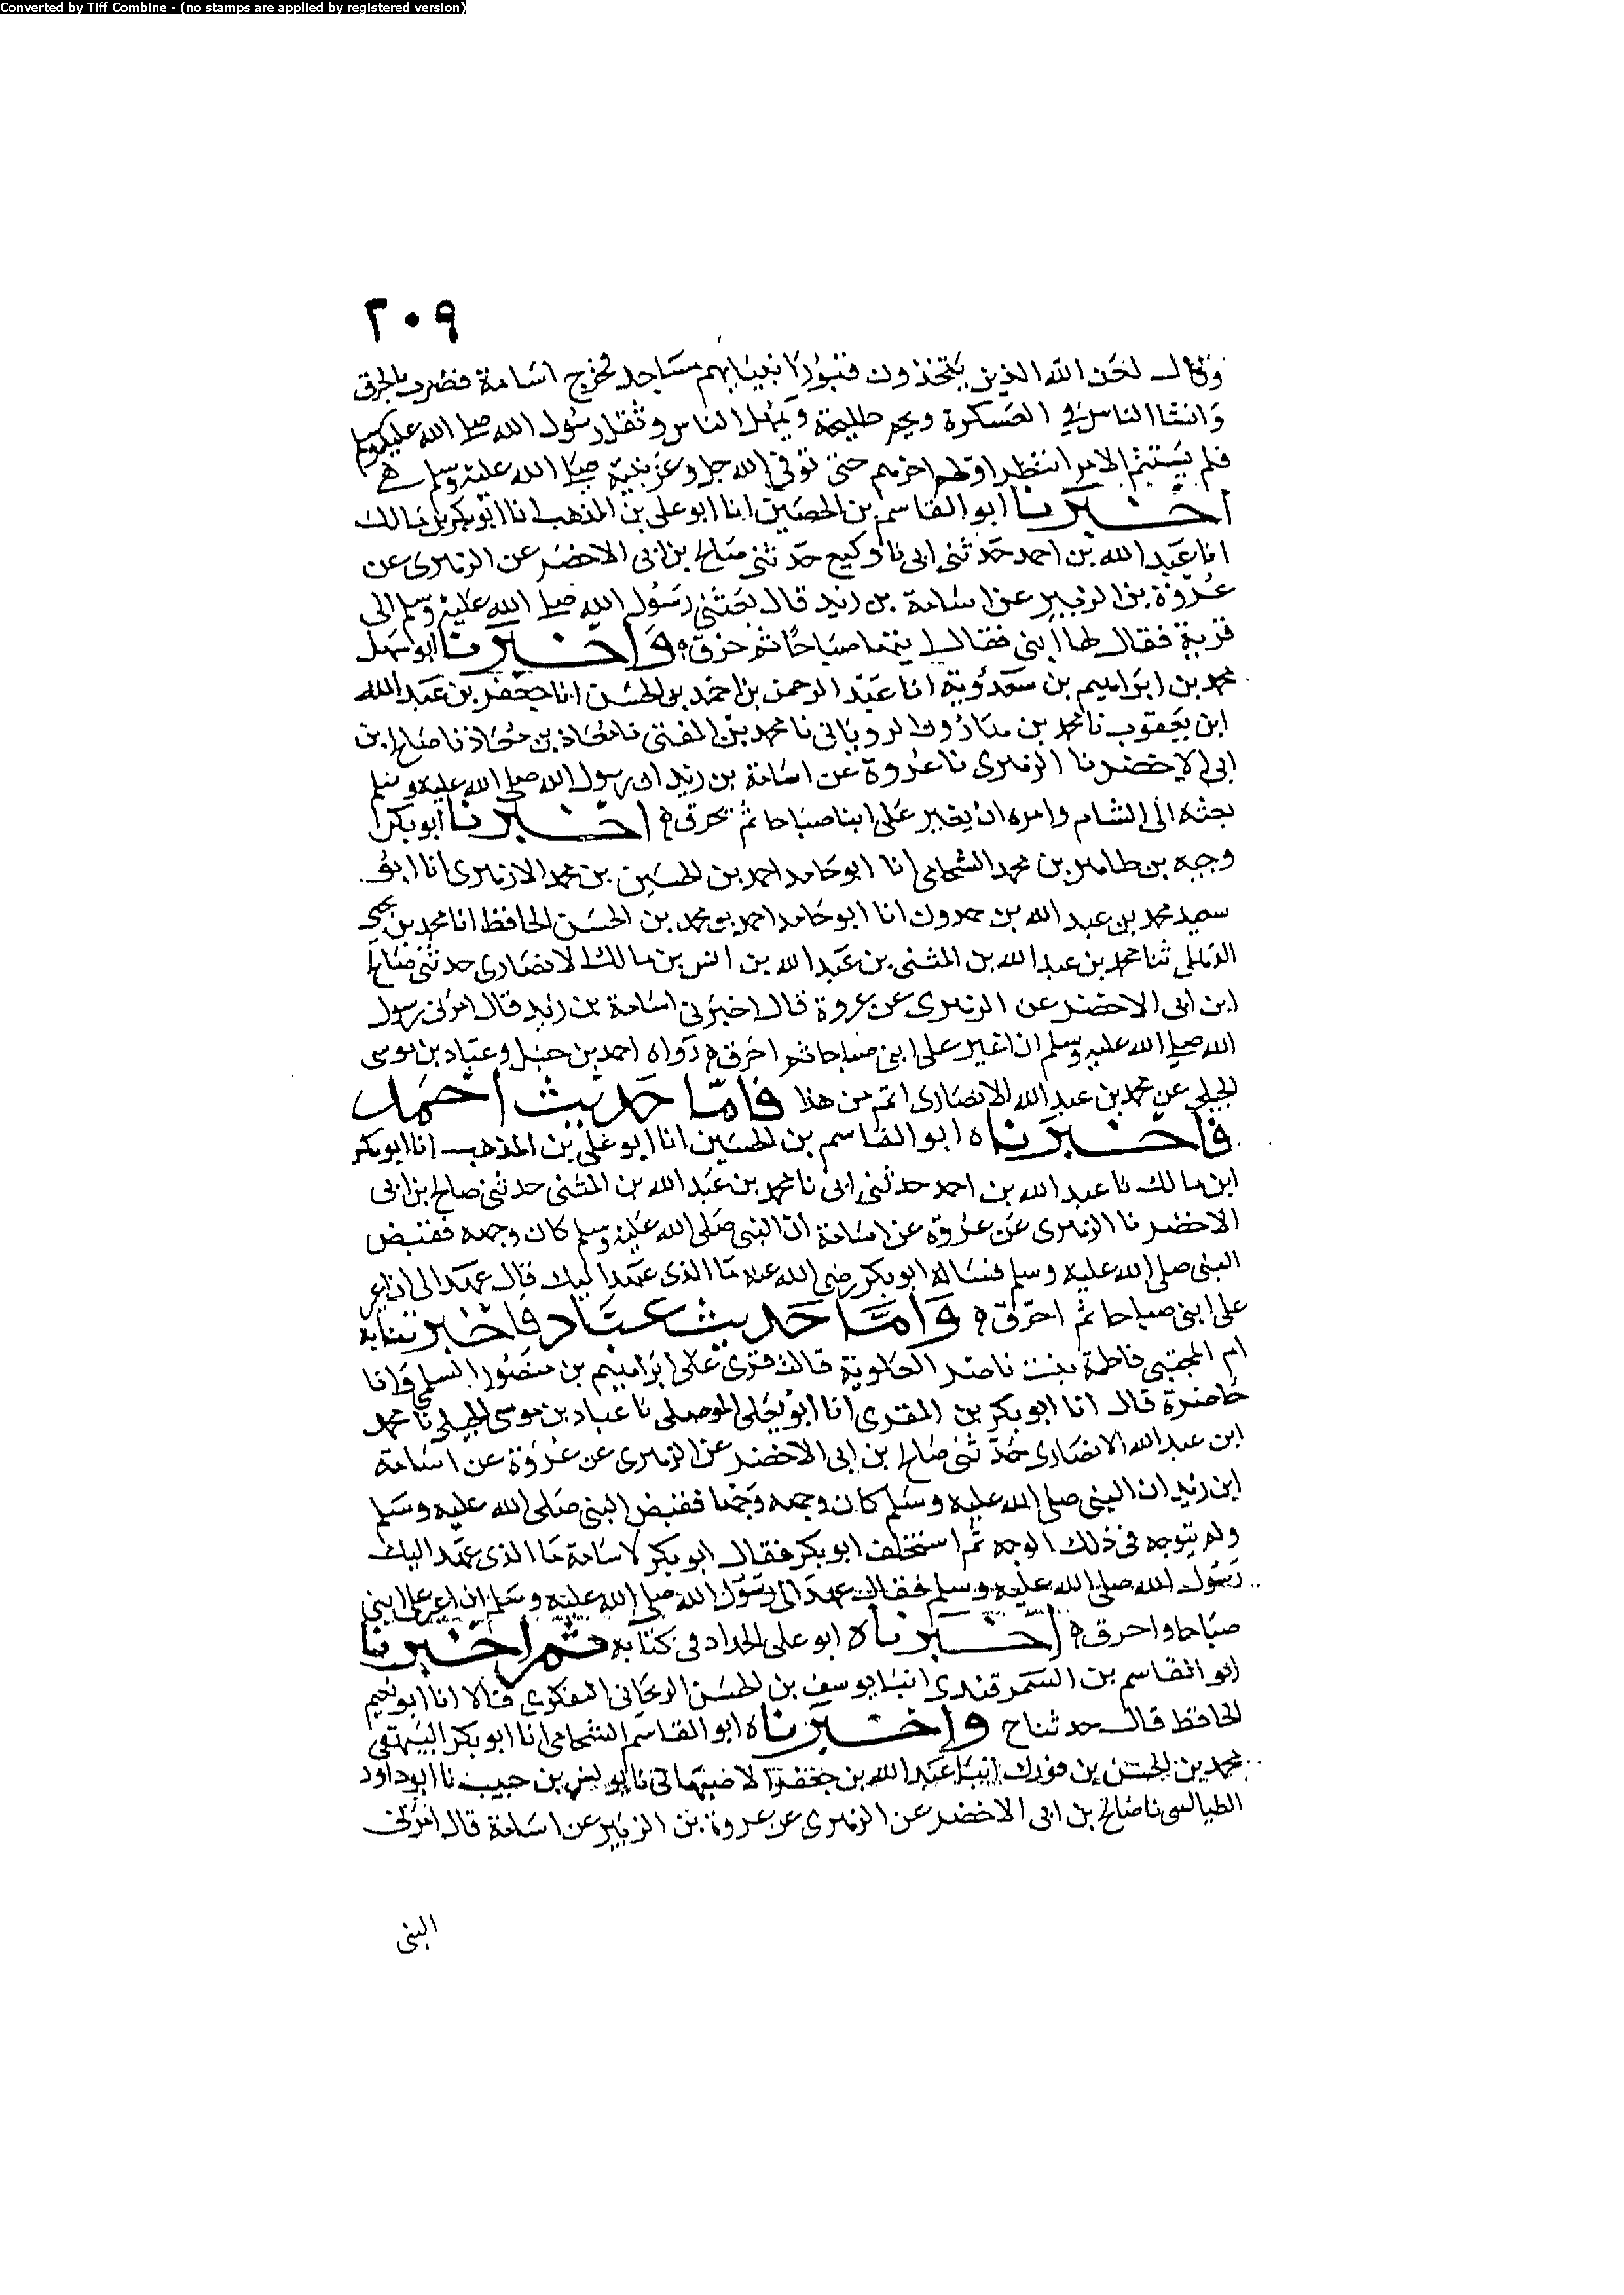 Converted by Tiff Combine - (no stamps are applied by registered version)
٢٠٩
وقال لعن الله الذين يتخذون قبور انبيايهم مساجد فخرج اسامة فضرب بالجرف
وانشا الناس في العسكرة ونجم طليحة وتمهل الناس وثقل رسول الله صلى الله عليه وسلم
فلم يستتم الامر انتظر اولهم اخرهم حتى توفي الله جل وعز نبيه صلى الله عليه وسلم
اخبرنا ابو القاسم بن الحصين انا ابو علي بن المذهب انا ابو بكر بن مالك
انا عبد الله بن احمد حدثني ابي نا وكيع حدثني صالح بن ابي الاخضر عن الزهري عن
عروة بن الزبير عن اسامة بن زيد قال بعثني رسول الله صلى الله عليه وسلم الى
قرية فقال لها ابنى فقال ايتها صباحا ثم حرق واخبرنا ابو سهل
محمد بن ابراهيم بن سعدوية انا عبد الرحمن بن احمد بن الحسن انا جعفر بن عبد الله
ابن يعقوب نا محمد بن هارون الروياني نا محمد بن المثنى نا معاذ بن معاذ نا صالح ابن
ابي الاخضر نا الزهري نا عروة عن اسامة بن زيد ان رسول الله صلى الله عليه وسلم
بعثه الى الشام وامره ان يغير على ابنا صباحا ثم يحرق اخبرنا ابو بكر
وجيه بن طاهر بن محمد الشحامي انا ابو حامد احمد بن الحسين بن محمد الازهري انا ابو
سعيد محمد بن عبد الله بن حمدون انا ابو حامد احمد بن محمد بن الحسن الحافظ انا محمد بن يحيى
الذهلي ثنا محمد بن عبد الله بن المثنى بن عبد الله بن انس بن مالك الانصاري حدثني صالح
ابن ابي الاخضر عن الزهري عن عروة قال اخبرني اسامة بن زيد قال امرني رسول
الله صلى الله عليه وسلم ان اغير على ابنى صباحا ثم احرق رواه احمد بن حنبل وعباد بن موسى
الجبلي عن محمد بن عبد الله الانصاري اتم من هذا فاما حديث احمد
فاخبرناه ابو القاسم بن الحصين انا ابو علي بن المذهب انا ابو بكر
ابن مالك نا عبد الله بن احمد حدثني ابي نا محمد بن عبد الله بن المثنى حدثني صالح بن ابي
الاخضر نا الزهري عن عروة عن اسامة ان النبي صلى الله عليه وسلم كان وجهه فقبض
النبي صلى الله عليه وسلم فساله ابو بكر رضي الله عنه ما الذي عهد اليك قال عهد الى ان اغير
على ابنى صباحا ثم احرق واما حديث عباد فاخبرتنا به
ام المجتبى فاطمة بنت ناصر العلوية قالت قري على ابراهيم بن منصور السلمي وانا
حاضرة قال انا ابو بكر بن المقري انا ابو يعلى الموصلي نا عباد بن موسى الجبلي نا محمد
ابن عبد الله الانصاري حدثني صالح بن ابي الاخضر عن الزهري عن عروة عن اسامة
ابن زيد ان النبي صلى الله عليه وسلم كان وجهه وجها فقبض النبي صلى الله عليه وسلم
ولم يتوجه في ذلك الوجه ثم استخلف ابو بكر فقال ابو بكر لاسامة ما الذي عهد اليك
رسول الله صلى الله عليه وسلم فقال عهد الى رسول الله صلى الله عليه وسلم ان اغير على ابنى
صباحا واحرق اخبرناه ابو علي الحداد في كتابه ثم اخبرنا
ابو القاسم بن السمرقندي انبا يوسف بن الحسن التفكري قالا انا ابو نعيم
الحافظ قال حدثنا ح واخبرناه ابو القاسم الشحامي انا ابو بكر البيهقي
محمد بن الحسن بن فورك انبا عبد الله بن جعفر الاصبهاني نا يونس بن حبيب نا ابو داود
الطيالسي نا صالح بن ابي الاخضر عن الزهري عن عروة بن الزبير عن اسامة قال امرني
النبي